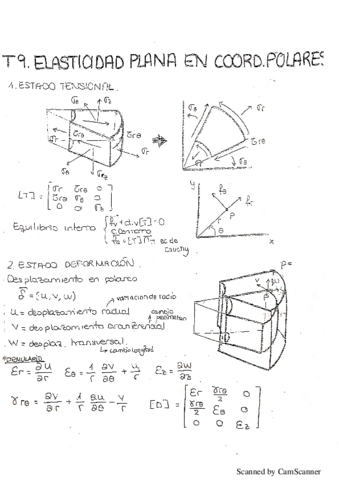 T9. ELASTICIDAD PLANA EN COORD. POLARES
1. ESTADO TENSIONAL
σθ σz
τrθ
σr
σrz
[T] = [σr τrθ 0
τrθ σθ 0
0 0 σz]
y
fθ fr
P
r
θ
x
Equilibrio interno { f̄v + div[T] = 0
contorno
f̄s = [T] n̄ → ec de
cauchy
2. ESTADO DEFORMACIÓN
P =
Desplazamiento en polares
δ̄ = (u, v, w) variación de radio
u = desplazamiento radial cambio
V = desplazamiento circunferencial
W = desplaz. transversal.
↳ cambio longitud
FORMULARIO
εr = ∂u/∂r εθ = 1/r ∂v/∂θ + u/r εz = ∂w/∂z
γrθ = ∂v/∂r + 1/r ∂u/∂θ − v/r [D] = [εr γrθ/2 0
γrθ/2 εθ 0
0 0 εz]
Scanned by CamScanner